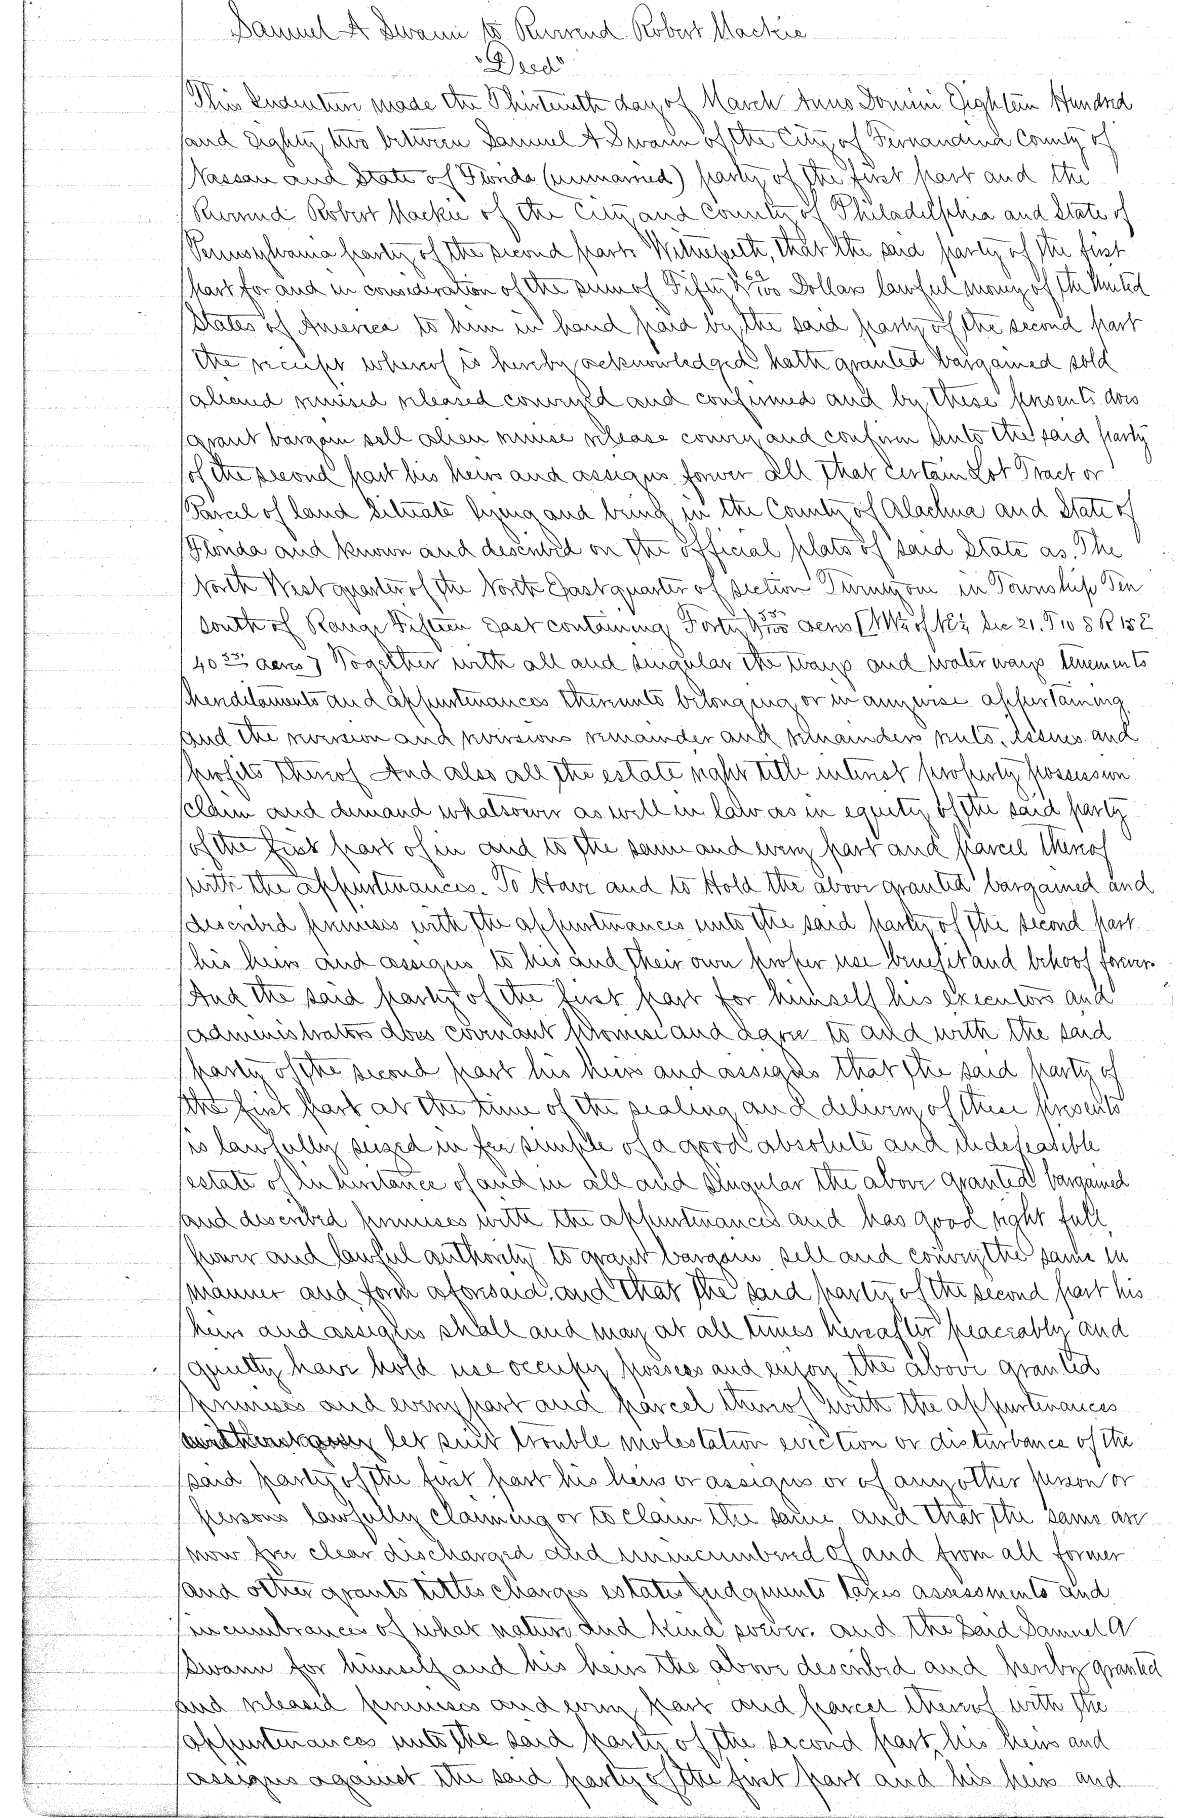 Samuel A Swann to Reverend Robert Mackie
"Deed"
This Indenture made the Thirteenth day of March Anno Domini Eighteen Hundred
and Eighty two between Samuel A Swann of the City of Fernandina County of
Nassau and State of Florida (unmarried) party of the first part and the
Reverend Robert Mackie of the City and County of Philadelphia and State of
Pennsylvania party of the second part. Witnesseth, that the said party of the first
part for and in consideration of the sum of Fifty & 69/100 Dollars lawful money of the United
States of America to him in hand paid by the said party of the second part
the receipt whereof is hereby acknowledged hath granted bargained sold
aliened remised released conveyed and confirmed and by these presents does
grant bargain sell alien remise release convey and confirm unto the said party
of the second part his heirs and assigns forever all that certain Lot Tract or
Parcel of land Situate lying and being in the County of Alachua and State of
Florida and known and described on the official plats of said State as. The
North West quarter of the North East quarter of section Twenty one in Township Ten
South of Range Fifteen East containing Forty & 55/100 acres [NW¼ of NE¼ Sec 21. T 10 S R 15 E
40 55/ acres] Together with all and singular the ways and water ways tenements
hereditaments and appurtenances thereunto belonging or in anywise appertaining
and the reversion and reversions remainder and remainders rents, issues and
profits thereof And also all the estate right title interest property possession
claim and demand whatsoever as well in law as in equity of the said party
of the first part of in and to the same and every part and parcel thereof
with the appurtenances. To Have and to Hold the above granted bargained and
described premises with the appurtenances unto the said party of the second part
his heirs and assigns to his and their own proper use benefit and behoof forever.
And the said party of the first part for himself his executors and
administrators does covenant promise and agree to and with the said
party of the second part his heirs and assigns that the said party of
the first part at the time of the sealing and delivery of these presents
is lawfully seized in fee simple of a good absolute and indefeasible
estate of inheritance of and in all and singular the above granted bargained
and described premises with the appurtenances and has good right full
power and lawful authority to grant bargain sell and convey the same in
manner and form aforesaid. and that the said party of the second part his
heirs and assigns shall and may at all times hereafter peaceably and
quietly have hold use occupy possess and enjoy the above granted
premises and every part and parcel thereof with the appurtenances
without any let suit trouble molestation eviction or disturbance of the
said party of the first part his heirs or assigns or of any other person or
persons lawfully claiming or to claim the same and that the same are
now free clear discharged and unincumbered of and from all former
and other grants titles charges estates judgments taxes assessments and
incumbrances of what nature and kind soever. and the Said Samuel A
Swann for himself and his heirs the above described and hereby granted
and released premises and every part and parcel thereof with the
appurtenances unto the said party of the second part, his heirs and
assigns against the said party of the first part and his heirs and